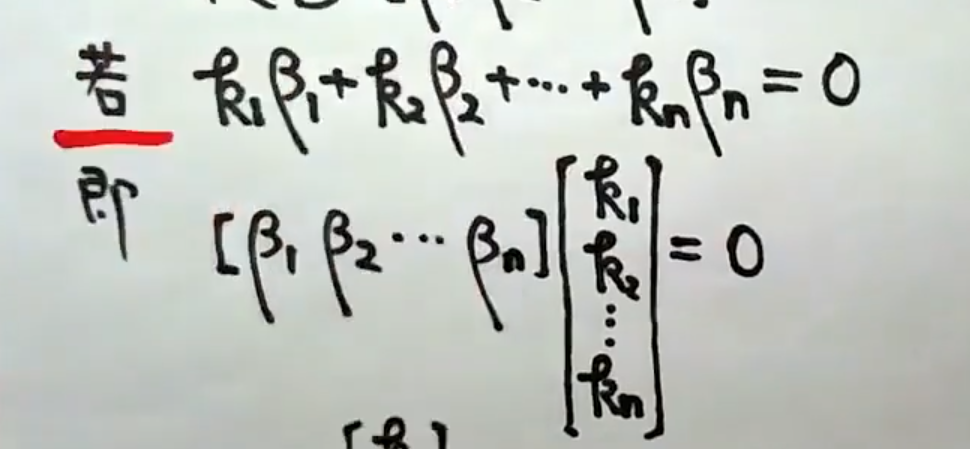 若 k₁β₁+k₂β₂+⋯+kₙβₙ=0
即 [β₁ β₂ ⋯ βₙ][k₁ k₂ ⋮ kₙ]=0